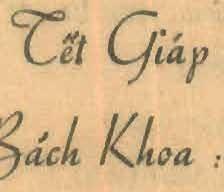 Tết Giáp
Bách Khoa :